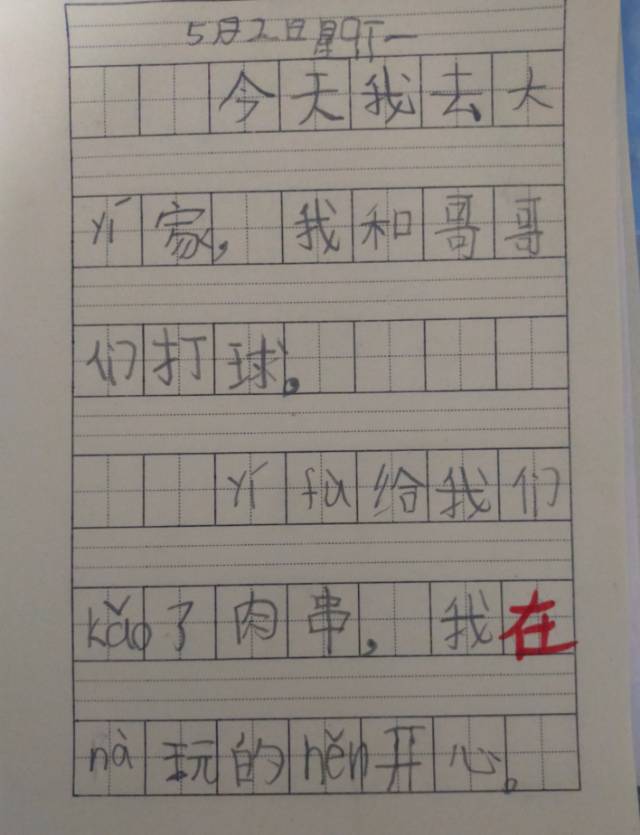 5月2日星期一
今天我去大
yí家，我和哥哥
们打球。
yí fu给我们
kǎo了肉串，我在
nà玩的hěn开心。